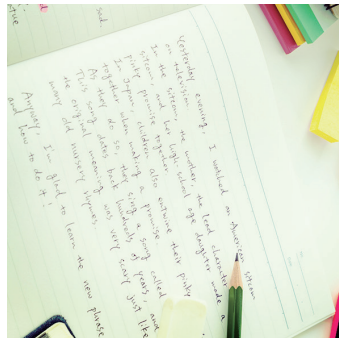 Yesterday evening, I watched an American sitcom
on television.
In the sitcom, the mother, the lead character
sitcom, and her high school age daughter made a
pinky promise together.
In Japan, children also entwine their pinky
together when making a promise.
As they do so, they sing a song called
This song dates back hundreds of years, and
the original meaning was very scary just like
many old nursery rhymes.
Anyway, I'm glad to learn the new phrase
and how to do it!
sad.